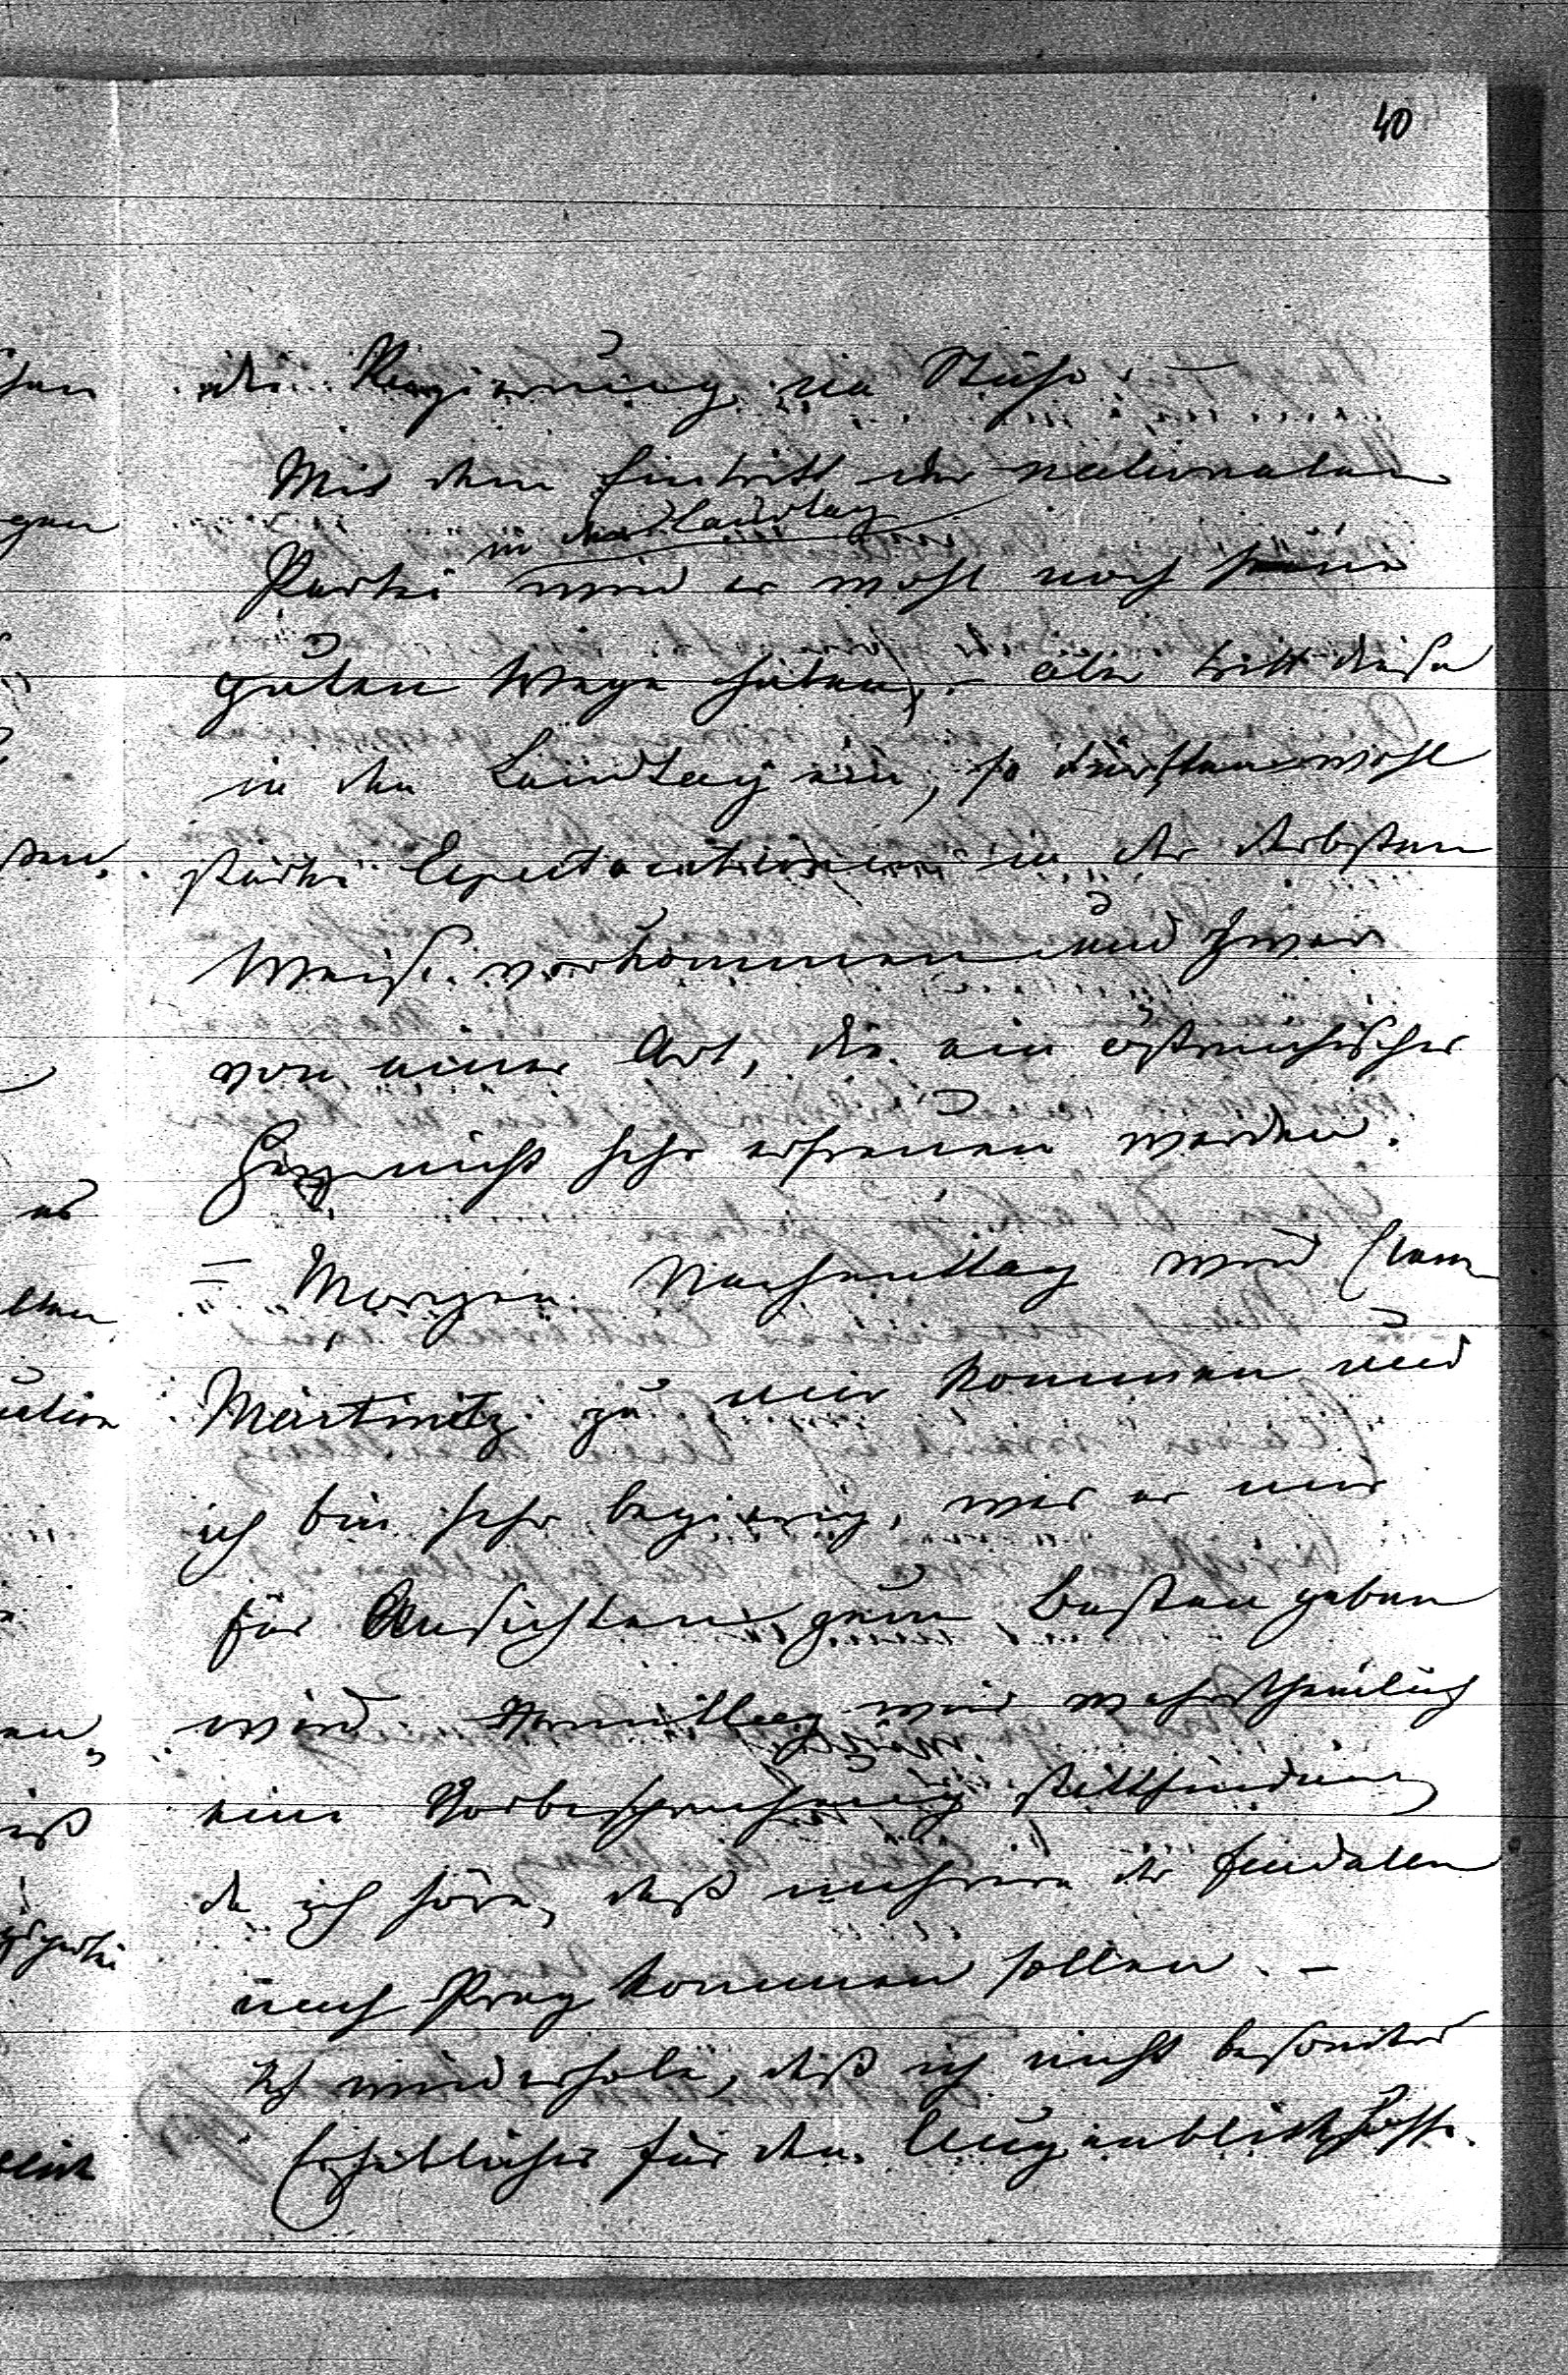 40
der Regierung in Ruhe.
Mit dem Eintritt der nationalen
in den Landtag
Partei wird es wohl noch seine
guten Wege haben, – aber tritt diese
in den Landtag ein, so dürften wohl
starke Expectorationen in der derbsten
Weise vorkommen und zwar
von einer Art, die ein östreichisches
Herz nicht sehr erfreuen werden.
= Morgen Nachmittag wird Clam
Martinitz zu mir kommen und
ich bin sehr begierig, was er mir
für Ansichten zum Besten geben
wird. Vormittag wird wahrscheinlich
eine Vorbesprechung stattfinden
da ich höre, daß mehrere der feudalen
nach Prag kommen sollen. –
Ich wiederhole, daß ich nicht besonders
Erhebliches für den Augenblick hoffe.